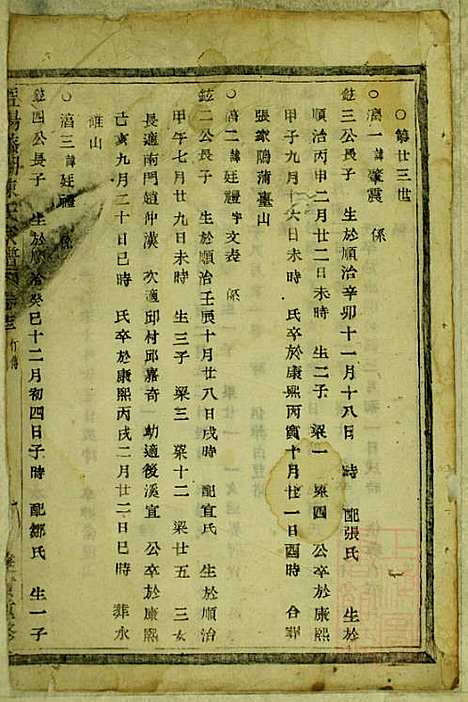 ○第廿三世
○滔一 諱肇震 係
鉉三公長子 生於順治辛卯十一月十八日 時 配張氏 生於
順治丙申二月廿二日未時 生二子 梁一 梁四 公卒於康熙
甲子九月十六日未時 氏卒於康熙丙寅十月廿一日酉時 合葬
張家隝蒲臺山
○滔二 諱廷禮 字文表 係
鉉二公長子 生於順治壬辰十月廿八日戌時 配宜氏 生於順治
甲午七月廿九日未時 生三子 梁三 梁十二 梁廿五 三女
長適南門趙仲漢 次適邱村邱嘉奇 幼適後溪宜 公卒於康熙
己亥九月二十日巳時 氏卒於康熙丙戌二月廿二日巳時 葬水
碓山
○滔三 諱廷禮 係
鉉四公長子 生於順治癸巳十二月初四日子時 配鄒氏 生一子